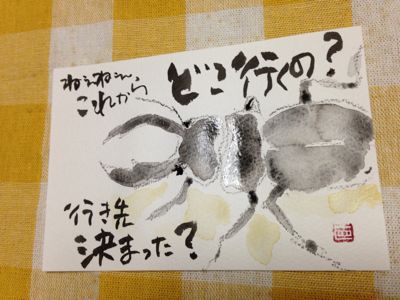 ねぇねぇ、
これから
どこ行くの?
行き先
決まった?